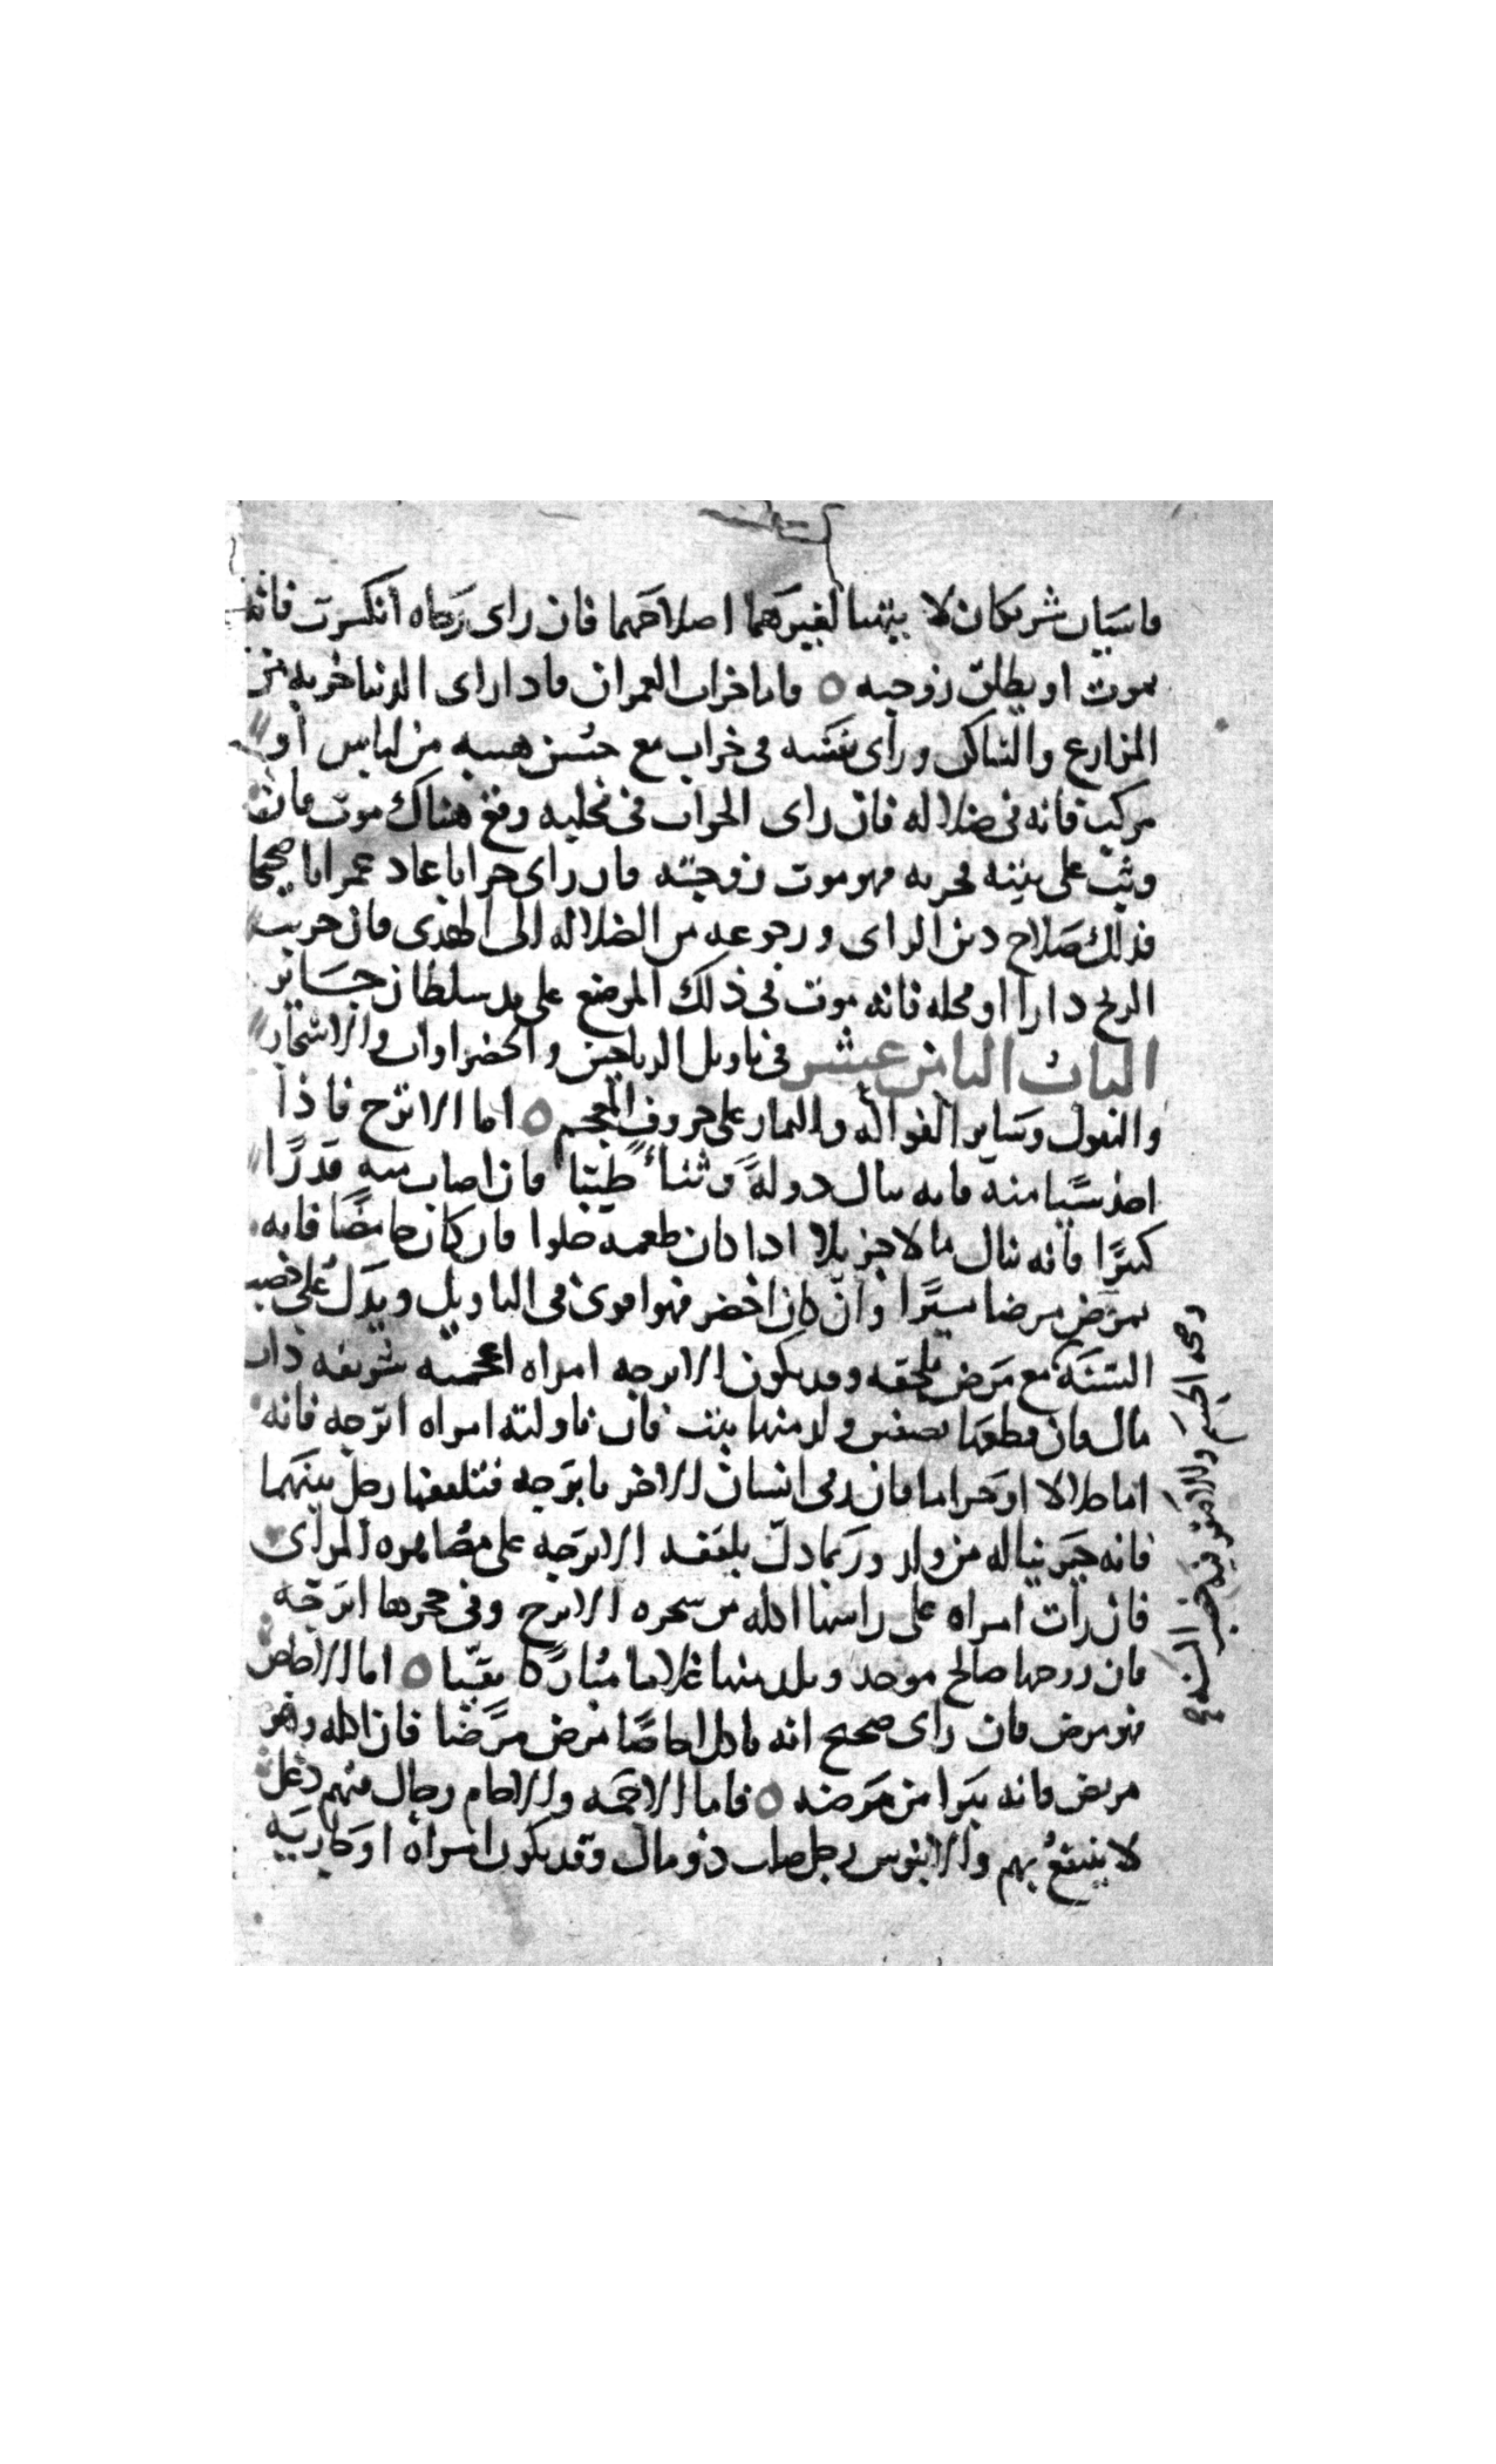 قاسيان شريكان لا يتهيا لغيرهما اصلاحهما فان راى رحاه انكسرت فانه
يموت او يطلق زوجته ○ واما خراب العمران فاذا راى الدنيا خربه من
المزارع والمساكن وراى نفسه فى خراب مع حسن هيبه من لباس او
مركب فانه فى ضلاله فان راى الخراب فى محلته وقع هناك موت فان
وثب على بيته فخربه فهو موت زوجته فان راى خرابا عاد عمرانا صحيحا
فذلك صلاح دين الراى ورجوعه من الضلاله الى الهدى فان خربت
الريح دارا او محله فانه موت فى ذلك الموضع على يد سلطان جاير
الباب الثامن عشر فى تاويل الرياحين والخضراوات والاشجار
والبقول وساير الفواكه والثمار على حروف المعجم ○ اما الاترج فاذا
اخذ شيا منه فانه ينال دولة وثناء طيبا فان اصاب منه قدرا
كبيرا فانه ينال مالا جزيلا اذا كان طعمه حلوا فان كان حامضا فانه
يمرض مرضا يسيرا وان كان اخضر فهو اقوى فى التاويل ويدل على خصب
السنة مع مرض يلحقه وقد يكون الاترجه امراه اعجميه شريفه ذات
مال فان قطعها نصفين ولد منها بنت فان ناولته امراه اترجه فانه
اما حلالا او حراما فان رمى انسان الاخر باترجه فتلقفها رجل بينهما
فانه خير يناله من ولد وربما دل بلقفه الاترجه على مصاهره المراى
فان رات امراه على راسها اكله من شجره الاترج وفى حجرها اترجه
فان زوجها صالح موحد ويلد منها غلاما مباركا تقيا ○ اما الاجاص
فهو مرض فان راى صحيح انه ياكل اجاصا مرض مرضا فان اكله وهو
مريض فانه يبرا من مرضه ○ فاما الاجمه والاجام رجال فيهم دغل
لا ينتفع بهم والابنوس رجل صلب ذو مال وقد يكون امراه او جاريه
وصحه الجسم والاصفر فيه خصب السنه